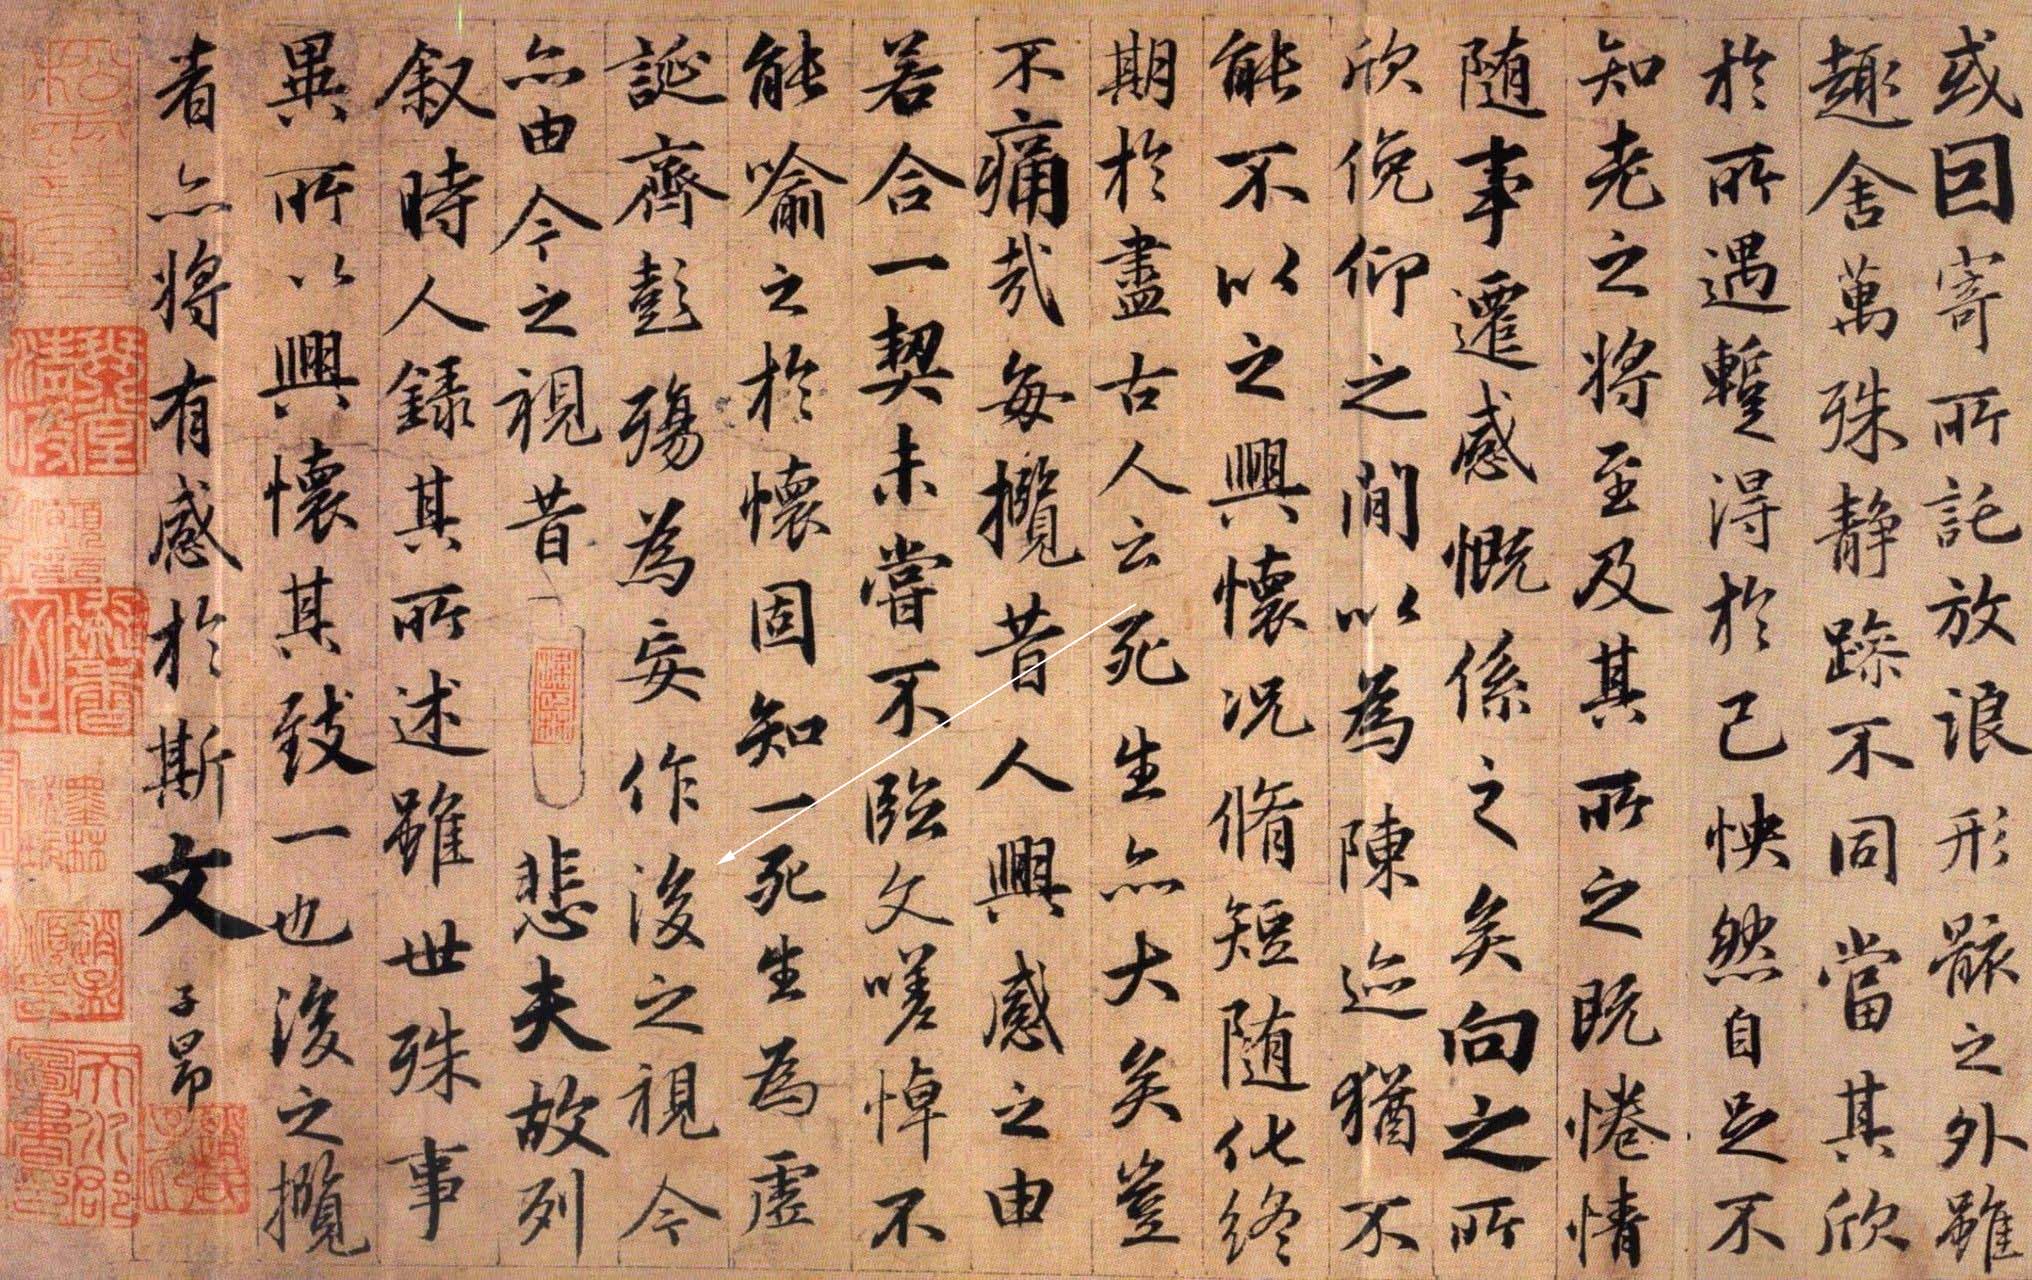 或因寄所託放浪形骸之外雖
趣舍萬殊静躁不同當其欣
於所遇暫得於己怏然自足不
知老之将至及其所之既惓情
随事遷感慨係之矣向之所
欣俛仰之間以為陳迹猶不
能不以之興懷况脩短随化終
期於盡古人云死生亦大矣豈
不痛哉每攬昔人興感之由
若合一契未嘗不臨文嗟悼不
能喻之於懷固知一死生為虚
誕齊彭殤為妄作後之視今
亦由今之視昔悲夫故列
叙時人錄其所述雖世殊事
異所以興懷其致一也後之攬
者亦将有感於斯文子昂